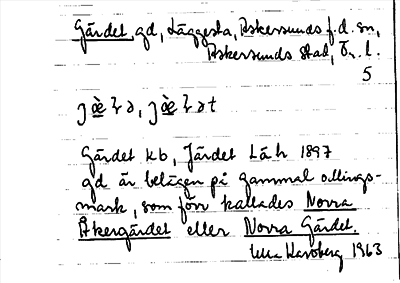 Gärdet, gd, Läggesta, Askersunds f.d. sn,
Askersunds stad, Ör. l.
5
Gärdet kb, Järdet Läh 1897
gd är belägen på gammal allmings-
mark, som förr kallades Norra
Åkergärdet eller Norra Gärdet.
1963